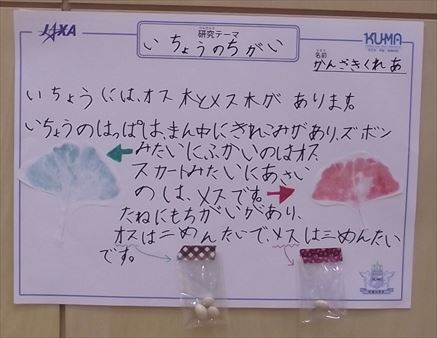 JAXA
研究テーマ
いちょうのちがい
KUMA
名前
かんざきくれあ
いちょうには、オス木とメス木があります。
いちょうのはっぱは、まん中にきれこみがあり、ズボン
みたいにふかいのはオス、
スカートみたいにあさい
のは、メスです。
たねにもちがいがあり、
オスは二めんたいで、メスは三めんたい
です。